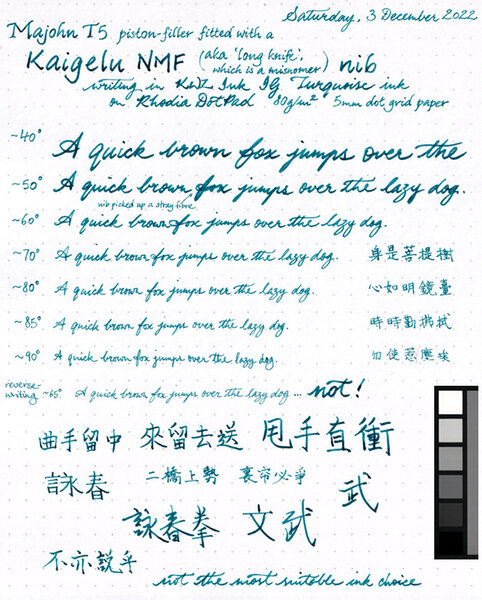 Saturday, 3 December 2022
Majohn T5 piston-filler fitted with a
Kaigelu NMF (aka 'long knife', which is a misnomer) nib
writing in KWZ Ink IG Turquoise ink
on Rhodia DotPad 80g/m² 5mm dot grid paper
~40° A quick brown fox jumps over the
~50° A quick brown fox jumps over the lazy dog.
nib picked up a stray fibre
~60° A quick brown fox jumps over the lazy dog.
~70° A quick brown fox jumps over the lazy dog. 身是菩提樹
~80° A quick brown fox jumps over the lazy dog. 心如明鏡臺
~85° A quick brown fox jumps over the lazy dog. 時時勤拂拭
~90° A quick brown fox jumps over the lazy dog. 勿使惹塵埃
reverse-writing ~65° A quick brown fox jumps over the lazy dog ... not!
曲手留中 來留去送 甩手直衝
詠春 二橋上勢 裏帘必爭 武
詠春拳 文武
不亦説乎
not the most suitable ink choice